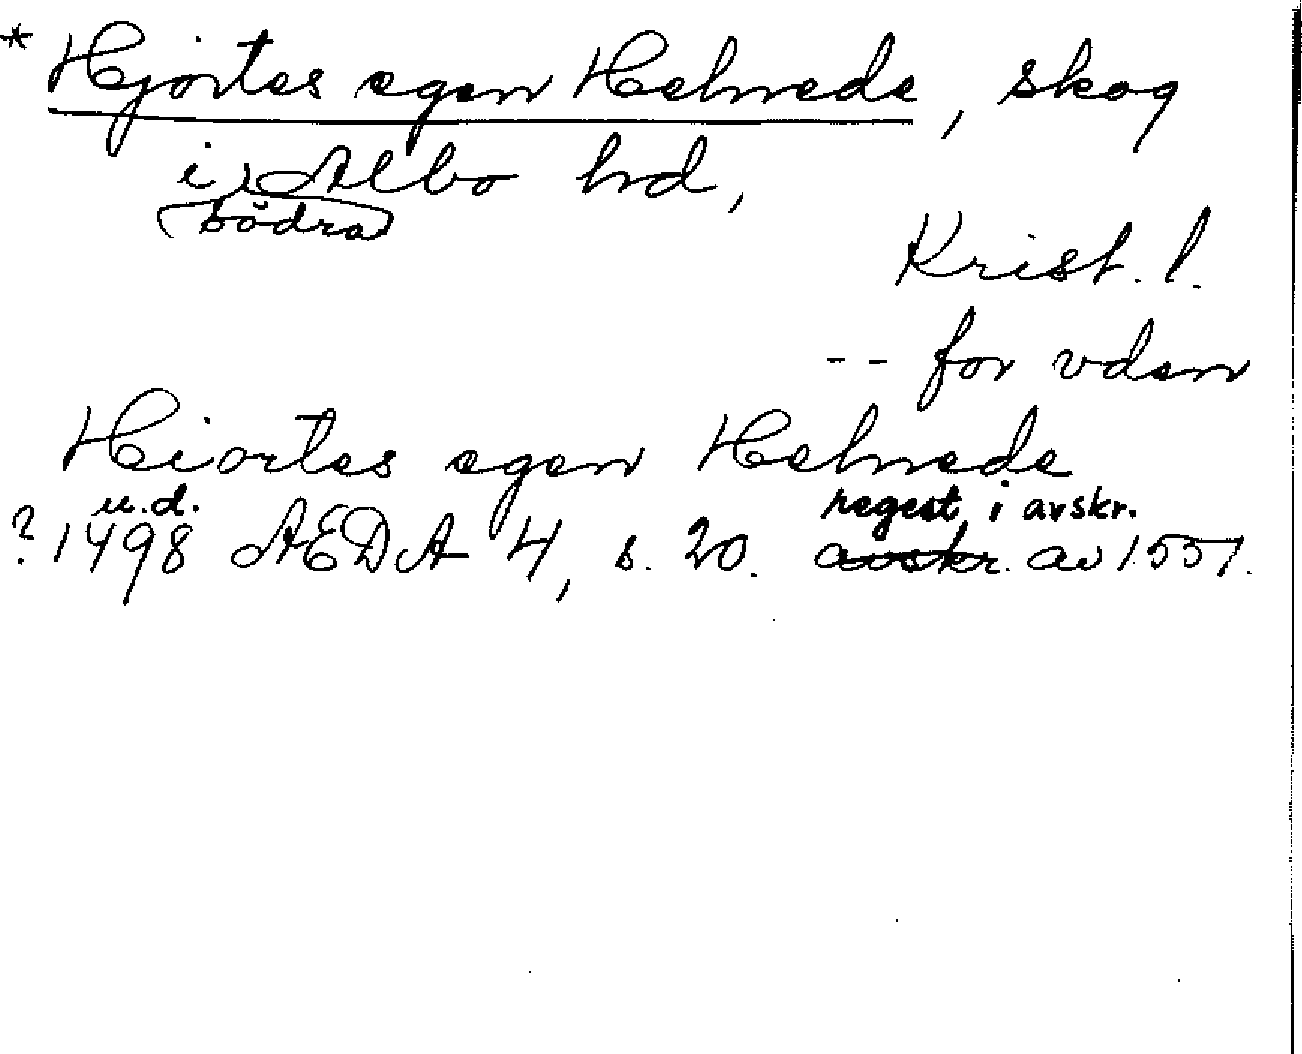 * Hjortes egen Helnede, skog
i Albo hd,
södra
Krist. l.
-- for vden
Hiortes egen Helnede
u.d. regest i avskr.
? 1498 AEDA 4, s. 20. avskr. av 1551.